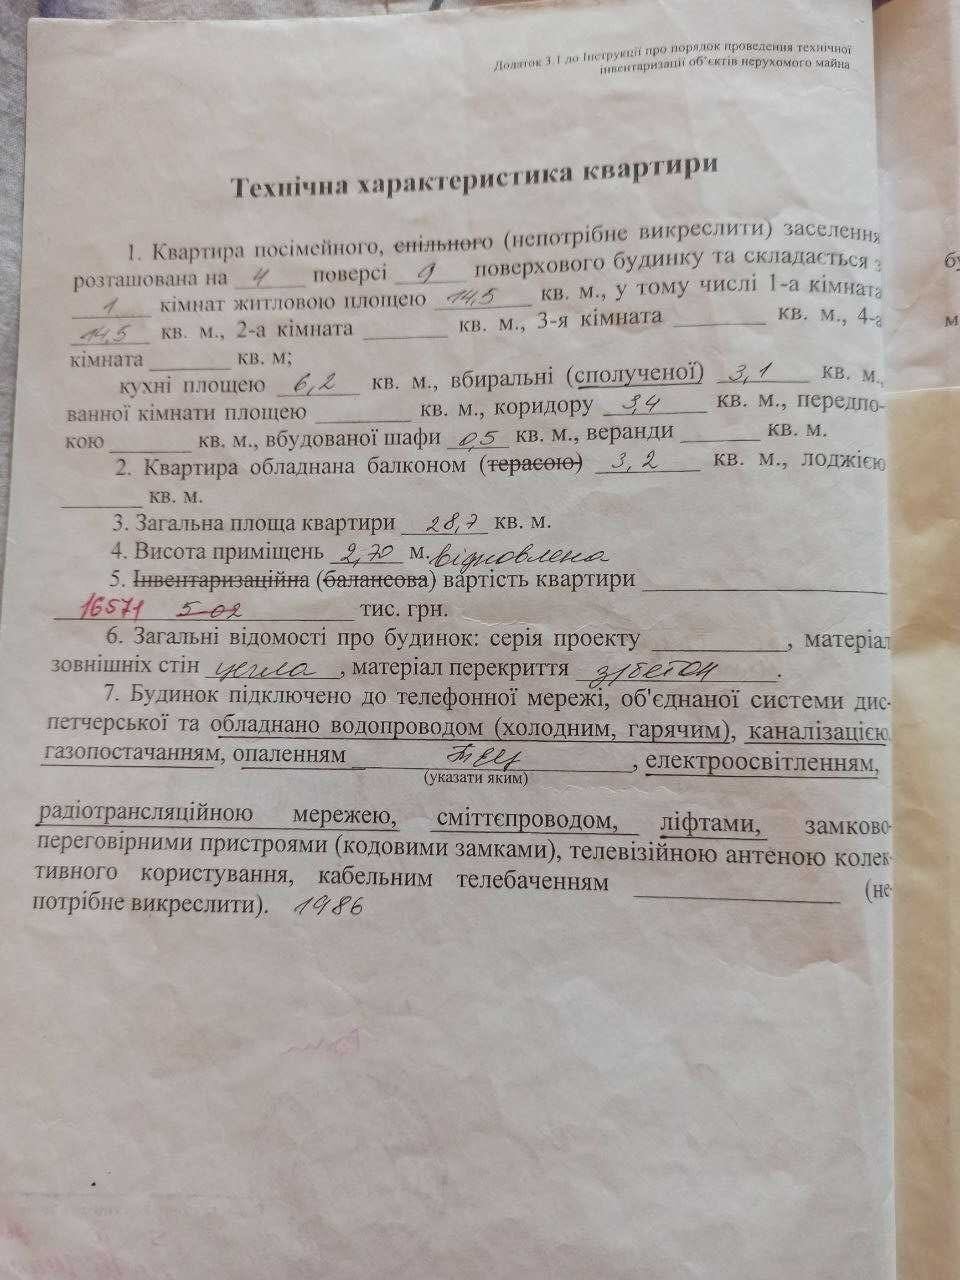 Додаток 3.1 до Інструкції про порядок проведення технічної
інвентаризації об'єктів нерухомого майна
Технічна характеристика квартири
1. Квартира посімейного, спільного (непотрібне викреслити) заселення
розташована на 4 поверсі 9 поверхового будинку та складається з
1 кімнат житловою площею 14,5 кв. м., у тому числі 1-а кімната
14,5 кв. м., 2-а кімната ________ кв. м., 3-я кімната ________ кв. м., 4-а
кімната ________ кв. м;
кухні площею 6,2 кв. м., вбиральні (сполученої) 3,1 кв. м.,
ванної кімнати площею ________ кв. м., коридору 3,4 кв. м., передпо-
кою ________ кв. м., вбудованої шафи 0,5 кв. м., веранди ________ кв. м.
2. Квартира обладнана балконом (терасою) 3,2 кв. м., лоджією
________ кв. м.
3. Загальна площа квартири 28,7 кв. м.
4. Висота приміщень 2,70 м. відновлена
5. Інвентаризаційна (балансова) вартість квартири ________
16571 5-02 тис. грн.
6. Загальні відомості про будинок: серія проекту ________, матеріал
зовнішніх стін цегла, матеріал перекриття з/бетон.
7. Будинок підключено до телефонної мережі, об'єднаної системи дис-
петчерської та обладнано водопроводом (холодним, гарячим), каналізацією,
газопостачанням, опаленням ТЕЦ, електроосвітленням,
(указати яким)
радіотрансляційною мережею, сміттєпроводом, ліфтами, замково-
переговірними пристроями (кодовими замками), телевізійною антеною колек-
тивного користування, кабельним телебаченням ________ (не-
потрібне викреслити). 1986